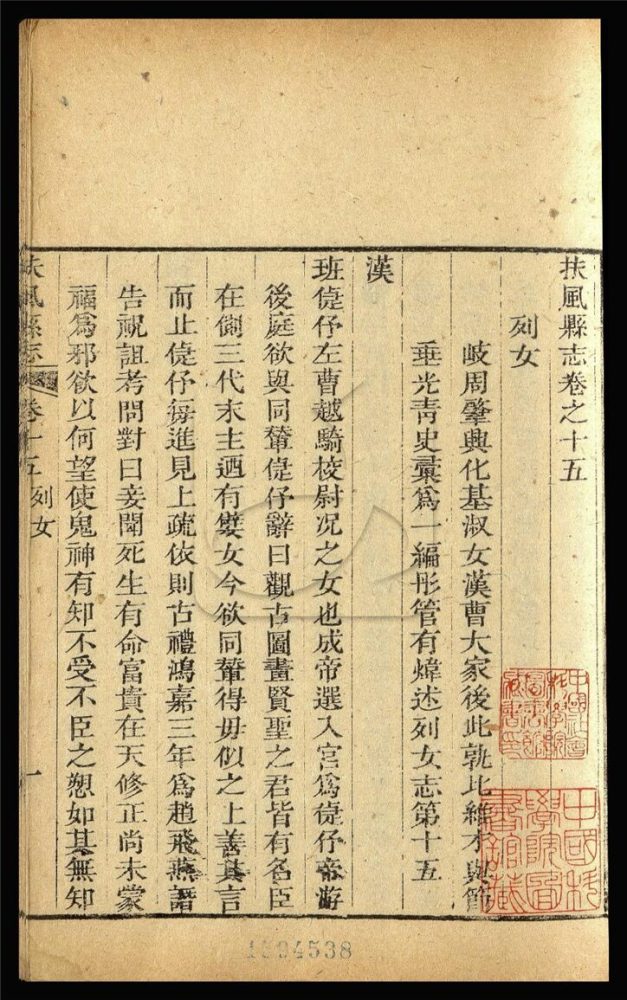 扶風縣志卷之十五
列女
岐周肇興化基淑女漢曹大家後此孰比維才與節
垂光靑史彚爲一編彤管有煒述列女志第十五
漢
班倢伃左曹越騎校尉況之女也成帝選入宮爲倢伃帝游
後庭欲與同輦倢伃辭曰觀古圖畫賢聖之君皆有名臣
在側三代末主迺有嬖女今欲同輦得毋似之上善其言
而止倢伃每進見上疏依則古禮鴻嘉三年爲趙飛燕譖
告祝詛考問對曰妾聞死生有命富貴在天修正尚未蒙
福爲邪欲以何望使鬼神有知不受不臣之愬如其無知
扶風縣志 卷十五 列女 一
中國科
學院圖
書館藏
1534538